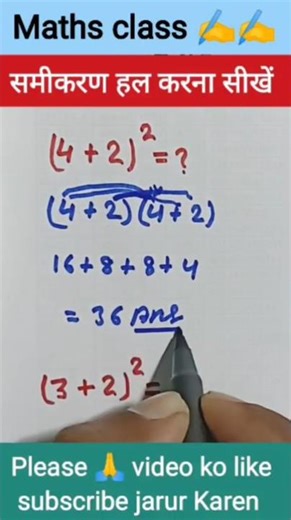 Maths class ✍️✍️
समीकरण हल करना सीखें
(4+2)²=?
(4+2)(4+2)
16+8+8+4
= 36 Ans
(3+2)²=
Please 🙏 video ko like
subscribe jarur Karen